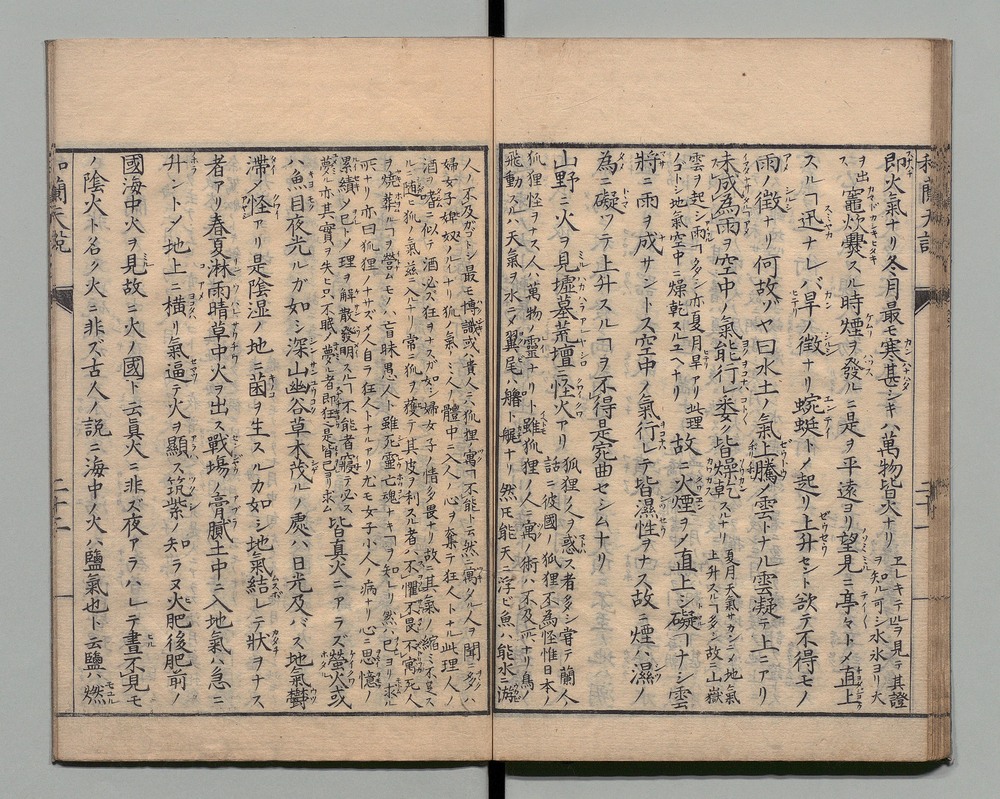 即火氣ナリ冬月最モ寒甚シキハ萬物皆火ナリ
ヱレキテルヲ見テ其證
ヲ知ル可シ水氷ヨリ火
ヲ出
竈炊爨スル時煙ヲ發ルニ是ヲ平遠ヨリ望見ニ亭々トメ直上
スルヿ迅ナレバ旱ノ徴ナリ蜿蜒トノ起リ上升セント欲テ不得モノ
雨ノ徴ナリ何故ソヤ曰水土ノ氣上騰ノ雲トナル雲凝テ上ニアリ
未成為雨ヲ空中ノ氣能行レ柴ク皆燥乾スルナリ
夏月天氣サカンニメ地氣
上升スルヿ多シ故ニ山嶽
雲ヲ起シ雨フルヿ多シ亦夏月旱アリ此理
ノコトシ地氣空中ニ燥乾スルユヘナリ
故ニ火煙ヲノ直上シ礙ヿナシ雲
將ニ雨ヲ成サントス空中ノ氣行レテ皆濕性ヲナス故ニ煙ハ濕ノ
為ニ礙ツテ上升スルヿヲ不得是宛曲セシムナリ
山野ニ火ヲ見墟墓荒壇ニ怪火アリ
狐狸人ヲ惑ス者多シ甞テ蘭人ノ
話ニ彼國ノ狐狸不為怪惟日本ノ
狐狸怪ヲナス人ハ萬物ノ靈ナリト雖狐狸ノ人ニ寓ノ術ハ不及所ナリ鳥ノ
飛動スルハ天氣ヲ水ニメ翼尾ハ艪ト觗ナリ
然氏能天ニ浮ビ魚ハ能水ニ游
人ノ不及ガコトシ最モ博識或ハ貴人ニハ狐狸寓ヿ不能ト云然ニ寓タル人ヲ聞ニ多ハ
婦女子婢奴ノルイナリ狐ノ氣ノミ人ノ體中ニ入人ノ心ヲ奪テ狂人トナル此理人ノ
酒ヲ者ニ似テ酒必ズ狂ヲナスガ如シ婦女子ノ情多畏ナリ故ニ其氣ノ縮ミ不足ス
ルニ随ヒ狐ノ氣茲ニ入ルナリ常ニ狐ヲ獲テ其皮ヲ利スル者ハ不懼不畏不寓死人
ヲ焼葬ルヿヲ營ムモノハ盲昧愚人ト雖死靈亡魂ナキヿヲ知レリ然ハ己ヨリ求ル
所ナリ亦曰狐狸ノナサズノ人自ラ狂人トナルアリ尤モ女子小人ノ病ナリ心ニ思憶ノ
累績ノ已トノ理ヲ解散發明スルヿ不能者寢テ必ス
夢ルモ亦其實ヲ失ヒ只不眠ノ夢ル者即狂是皆己リ求ム
皆真火ニアラズ螢火或
ハ魚目夜光ルガ如シ深山幽谷草木茂ルノ處ハ日光及バス地氣欝
滯ノ怪アリ是陰湿ノ地ニ菌ヲ生スルカ如シ地氣結レテ狀ヲナス
者アリ春夏淋雨晴草中火ヲ出ス戰場ノ膏膩土中ニ入地氣ハ急ニ
升ントノ地上ニ横リ氣逼テ火ヲ顯ス筑紫ノ不知ラヌ火肥後肥前ノ
國海中火ヲ見故ニ火ノ國ト云真火ニ非ズ夜アラハレテ晝不見モ
ノ陰火ト名ク火ニ非ズ古人ノ説ニ海中ノ火ハ鹽氣也ト云鹽ハ燃
和蘭天説
二十二